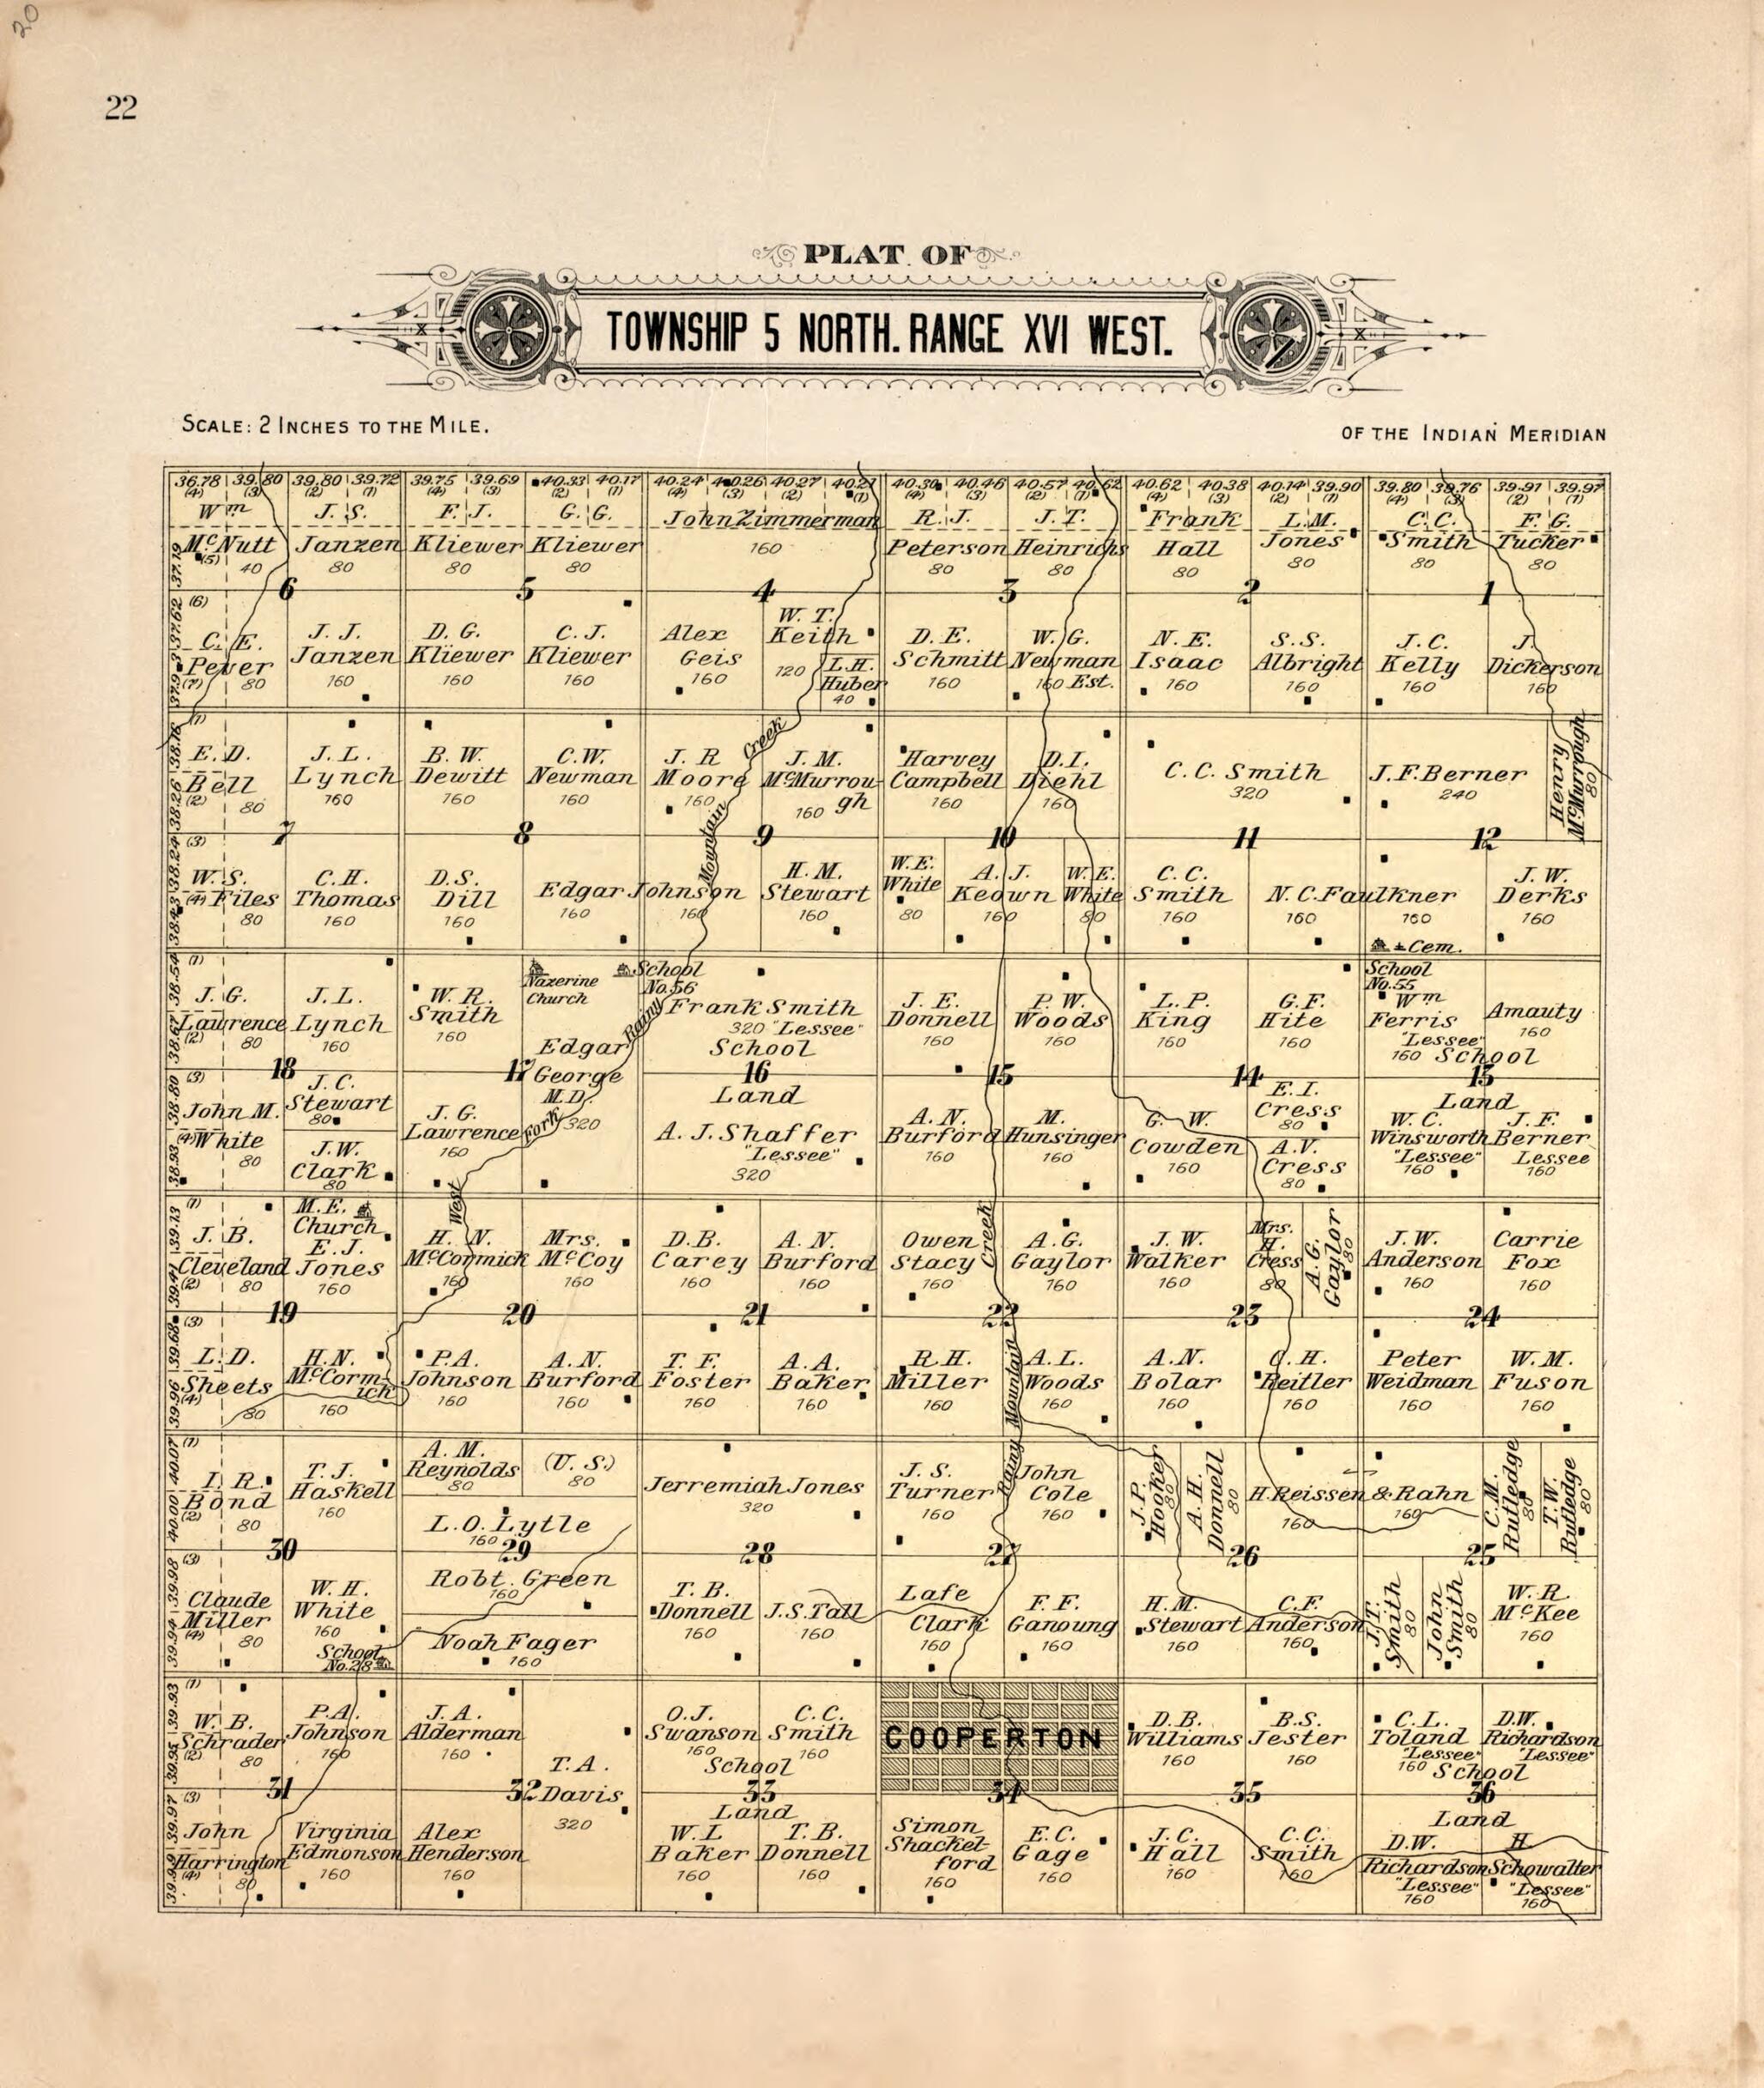 20
22
PLAT OF
TOWNSHIP 5 NORTH. RANGE XVI WEST.
SCALE: 2 INCHES TO THE MILE.
OF THE INDIAN MERIDIAN
36.78 39.80 39.80 39.72 39.75 39.69 40.33 40.17 40.24 40.26 40.27 40.21 40.30 40.46 40.57 40.62 40.62 40.38 40.14 39.90 39.80 39.76 39.91 39.97
(4) (3) (2) (1) (4) (3) (2) (1) (4) (3) (2) (1) (4) (3) (2) (1) (4) (3) (2) (1) (4) (3) (2) (1)
Wm
McNutt
40
(5)
37.19
J. S.
Janzen
80
F. J.
Kliewer
80
G. G.
Kliewer
80
John Zimmerman
160
R. J.
Peterson
80
J. T.
Heinrichs
80
Frank
Hall
80
L. M.
Jones
80
C. C.
Smith
80
F. G.
Tucker
80
6 5 4 3 2 1
37.62
(6)
C. E.
Pever
(7)
80
J. J.
Janzen
160
D. G.
Kliewer
160
C. J.
Kliewer
160
Alex
Geis
160
W. T.
Keith
120
L. H.
Huber
40
D. E.
Schmitt
160
W. G.
Newman
160 Est.
N. E.
Isaac
160
S. S.
Albright
160
J. C.
Kelly
160
J.
Dickerson
160
(1)
E. D.
Bell
(2)
80
38.26
J. L.
Lynch
160
B. W.
Dewitt
160
C. W.
Newman
160
J. R
Moore
160
Creek
Mountain
J. M.
McMurrou
gh
160
Harvey
Campbell
160
D. I.
Diehl
160
C. C. Smith
320
J. F. Berner
240
Henry
McMurrough
80
7 8 9 10 11 12
38.24
(3)
W. S.
Files
(4)
80
C. H.
Thomas
160
D. S.
Dill
160
Edgar Johnson
160 160
H. M.
Stewart
160
W. E.
White
80
A. J.
Keown
160
W. E.
White
80
C. C.
Smith
160
N. C. Faulkner
160 160
J. W.
Derks
160
Cem.
38.54
(1)
J. G.
Lawrence
(2)
80
38.67
J. L.
Lynch
160
W. R.
Smith
160
Nazerine
Church
School
No. 56
Edgar
George
M. D.
320
Rainy
Fork
West
Frank Smith
320 "Lessee"
School
J. E.
Donnell
160
P. W.
Woods
160
L. P.
King
160
G. F.
Hite
160
School
No. 55
Wm
Ferris
"Lessee"
160 School
Amauty
160
18 17 16 15 14 13
38.80
(3)
John M.
White
(4)
80
38.93
J. C.
Stewart
80
J. W.
Clark
80
J. G.
Lawrence
160
Land
A. J. Shaffer
"Lessee"
320
A. N.
Burford
160
M.
Hunsinger
160
G. W.
Cowden
160
E. I.
Cress
80
A. V.
Cress
80
Land
W. C.
Winsworth
"Lessee"
160
J. F.
Berner
Lessee
160
39.13
(1)
J. B.
Cleveland
(2)
80
39.47
M. E.
Church
E. J.
Jones
160
H. N.
McCormick
160
Mrs.
McCoy
160
D. B.
Carey
160
A. N.
Burford
160
Owen
Stacy
160
Creek
A. G.
Gaylor
160
J. W.
Walker
160
Mrs.
H.
Cress
80
A. G.
Gaylor
80
J. W.
Anderson
160
Carrie
Fox
160
19 20 21 22 23 24
39.68
(3)
L. D.
Sheets
(4)
80
39.96
H. N.
McCorm
ick
160
P. A.
Johnson
160
A. N.
Burford
160
T. F.
Foster
160
A. A.
Baker
160
R. H.
Miller
160
Rainy Mountain
A. L.
Woods
160
A. N.
Bolar
160
C. H.
Reitler
160
Peter
Weidman
160
W. M.
Fuson
160
40.07
(1)
I. R.
Bond
(2)
80
40.00
T. J.
Haskell
160
A. M.
Reynolds
80
(U. S.)
80
L. O. Lytle
160
Jerremiah Jones
320
J. S.
Turner
160
John
Cole
160
J. P.
Hooker
80
A. H.
Donnell
80
H. Reissen & Rahn
160 160
C. M.
Rutledge
80
T. W.
Rutledge
80
30 29 28 27 26 25
39.98
(3)
Claude
Miller
(4)
80
39.94
W. H.
White
160
School
No. 28
Robt. Green
160
Noah Fager
160
T. B.
Donnell
160
J. S. Tall
160
Lafe
Clark
160
F. F.
Ganoung
160
H. M.
Stewart
160
C. F.
Anderson
160
J. T.
Smith
80
John
Smith
80
W. R.
McKee
160
39.93
(1)
W. B.
Schrader
(2)
80
39.95
P. A.
Johnson
160
J. A.
Alderman
160
T. A.
Davis
320
O. J.
Swanson
160
C. C.
Smith
160
School
COOPERTON
D. B.
Williams
160
B. S.
Jester
160
C. L.
Toland
"Lessee"
160
D. W.
Richardson
"Lessee"
School
31 32 33 34 35 36
39.97
(3)
John
Harrington
(4)
80
39.99
Virginia
Edmonson
160
Alex
Henderson
160
Land
W. I.
Baker
160
T. B.
Donnell
160
Simon
Shackel-
ford
160
E. C.
Gage
160
J. C.
Hall
160
C. C.
Smith
160
Land
D. W.
Richardson
"Lessee"
160
H
Schowalter
"Lessee"
160